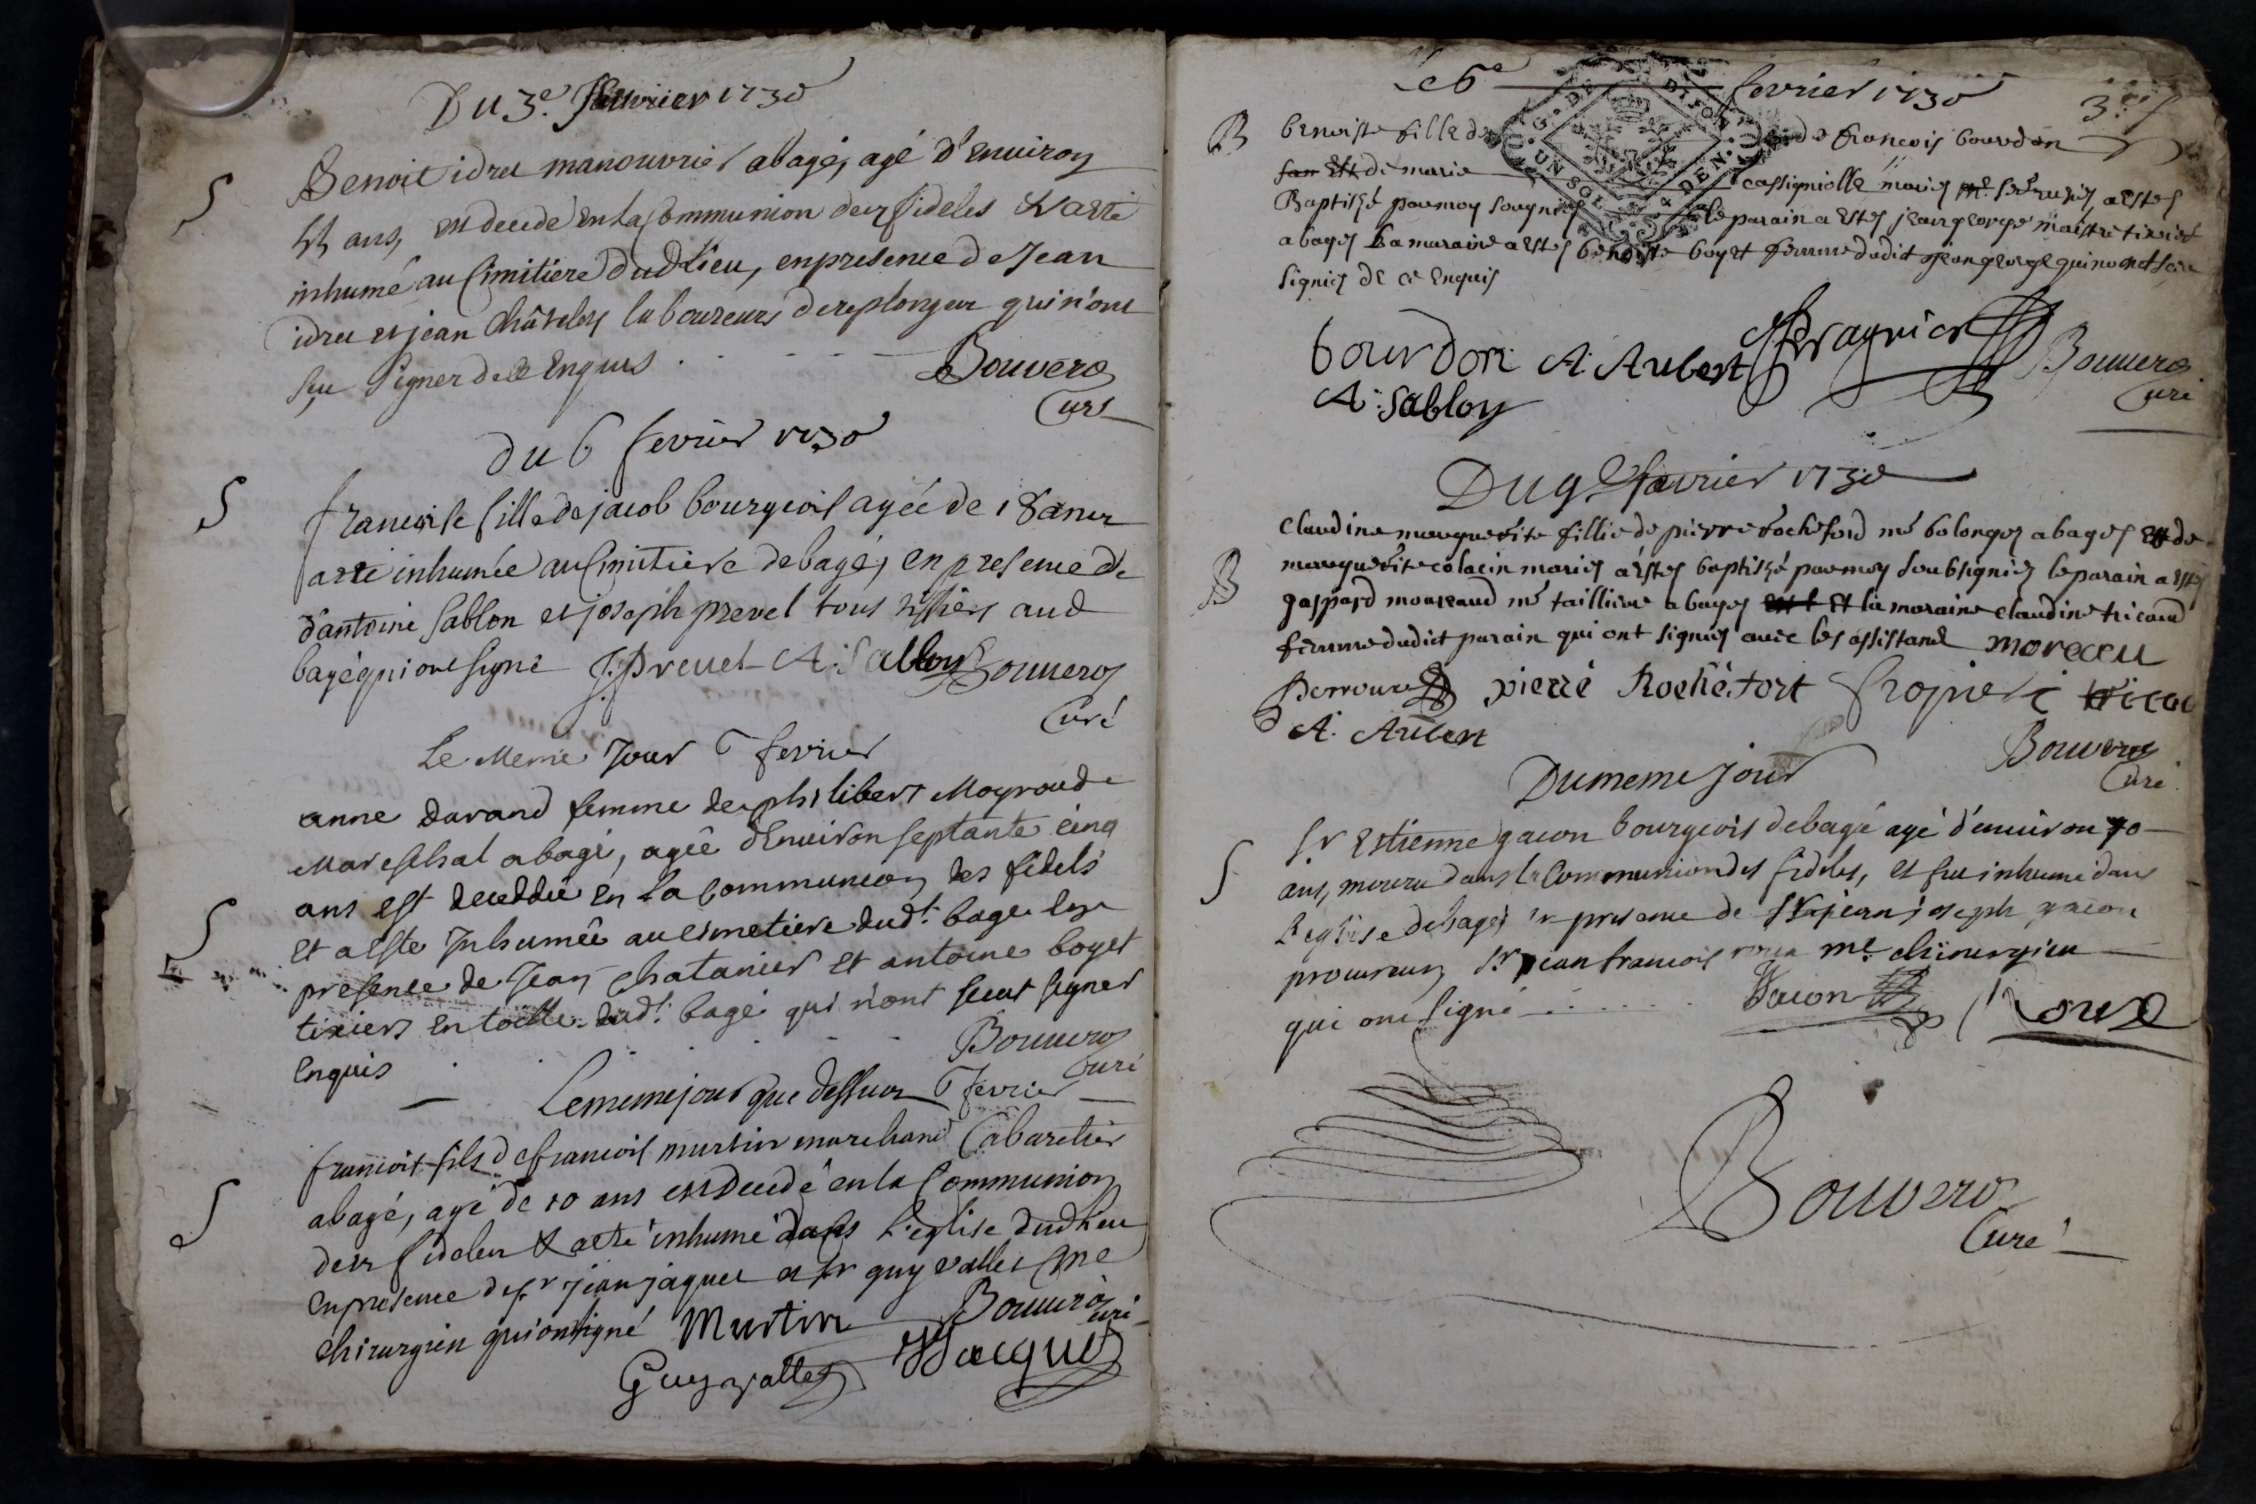 Du 3e. fevrier 1730
S
Benoit idru manouvrier abagé, agé d'environ
ans, est decedé en la Communion des fideles & a esté
inhumé au Cimitiere dud lieu, en presence de Jean
idru et jean Châtelet laboureurs de replonge qui n'ont
sçu signer de ce Enquis
Bouvero
Curé
du 6 fevrier 1730
S
francoise fille de jacob bourgeois agée de 18 ans
a esté inhumée au Cimitiere de bagé, en presence de
d'antoine Sablon et joseph prevel tous aud
bagé qui ont signé J: Prevel A: Sablon Bouvero
Curé
Le Meme Jour 6 fevrier
anne davand femme de philibert Moyroud
Mareschal abagé, agée d'Environ septante cinq
S
ans est deceddée en la Communion des fidels
et a esté Inhumée au cimetiere dud.t bagé en
presence de Jean Chatanier et antoine boyet
tixiers en toille dud.t bagé qui n'ont sceut signer
Enquis
Bouvero
Curé
Le meme jour que dessus 6 fevrier
francois fils de francois martin marchand Cabaretier
S
abagé, agé de 10 ans est decedé en la Communion
des fideles & a esté inhumé dans L'eglise dud lieu
en presence de sr jean jaques et sr guy valles me
chirurgien qui ont signé Martin Bouvero
Curé
Guy valles Jacques
Le 6e fevrier 1730
3e
B
benoiste fille de francois bourdon
de marie cassigniolle mariés a estes
Baptisé par moy sousigniés le parain a estes jean george maistre tixier
a bages La maraine a estes benoiste boyet femme dudit jean george qui n'ont sceu
signier de ce enquis
bourdon A: Aubert Pragnier Bouvero
A: Sablon Curé
Du 9e fevrier 1730
claudine marguerite fillie de pierre Rocheford mé bolonges a bages et de
B
marguerite colacin mariés a estes baptisé par moy soubsigniés le parain a estes
gaspard moureaud mé taillieur a bages et la maraine claudine tricaud
femme dudict parain qui ont signiés avec les assistand moreau
Perroux pierre Rochefort tricau
A: Aubert
Bouvero
Curé
Du meme jour
S
Sr Estienne gacon bourgeois de bagé agé d'environ 70
ans, mouru dans la Communion des fideles, et fut inhumé dans
L'eglise de bagé en presence de Sr jean joseph gacon
procureur, Sr jean francois roux me. chirurgien
qui ont signé Gacon Roux
Bouvero
Curé